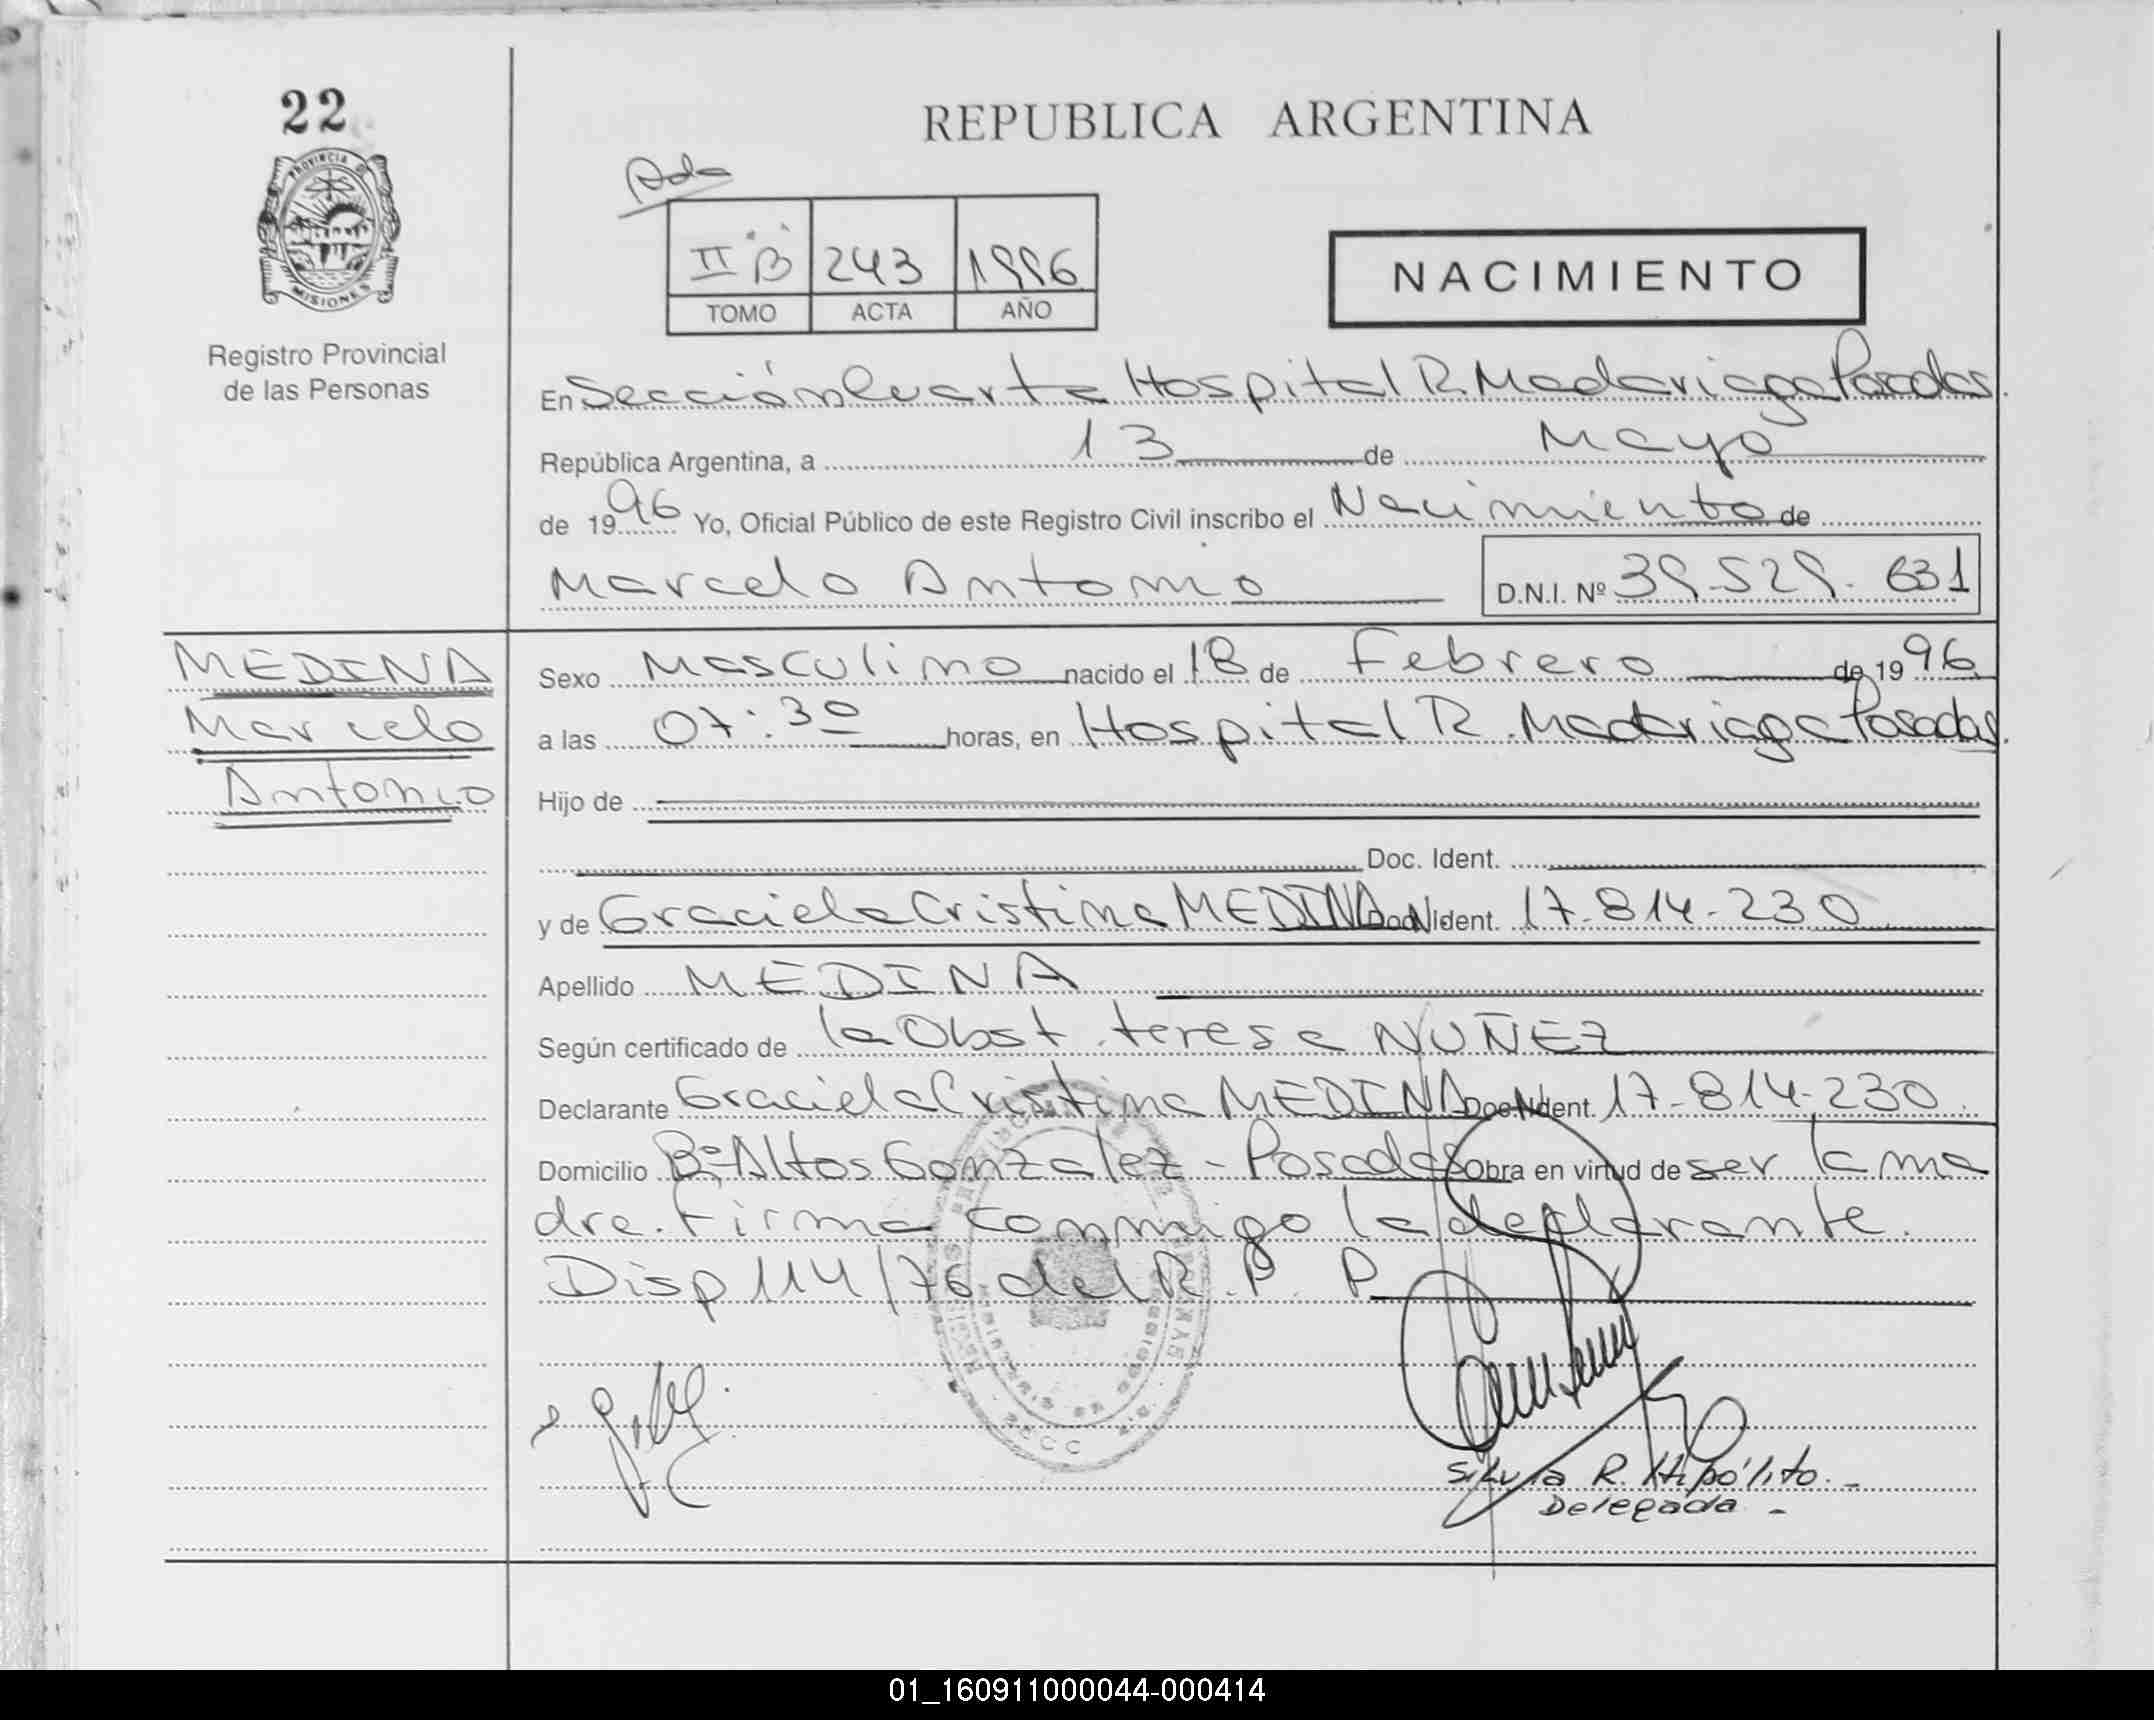 22
PROVINCIA DE
MISIONES
Registro Provincial
de las Personas
REPUBLICA ARGENTINA
II "B" 243 1996
TOMO ACTA AÑO
NACIMIENTO
En Sección Cuarta Hospital R. Madariaga Posadas.
República Argentina, a 13 de Mayo
de 1996 Yo, Oficial Público de este Registro Civil inscribo el Nacimiento de
Marcelo Antonio D.N.I. Nº 39.529.631
MEDINA
Marcelo
Antonio
Sexo Masculino nacido el 18 de Febrero de 1996
a las 07:30 horas, en Hospital R. Madariaga Posadas.
Hijo de
Doc. Ident.
y de Graciela Cristina MEDINA DNI Doc. Ident. 17.814.230
Apellido MEDINA
Según certificado de la Obst. teresa NUÑEZ
Declarante Graciela Cristina MEDINA DNI Doc. Ident. 17-814-230
Domicilio Bº Altos Gonzalez - Posadas Obra en virtud de ser la ma
dre. Firma conmigo la declarante.
Disp 114/76 del R. P. P
Silvia R. Hipólito. -
Delegada -
01_160911000044-000414